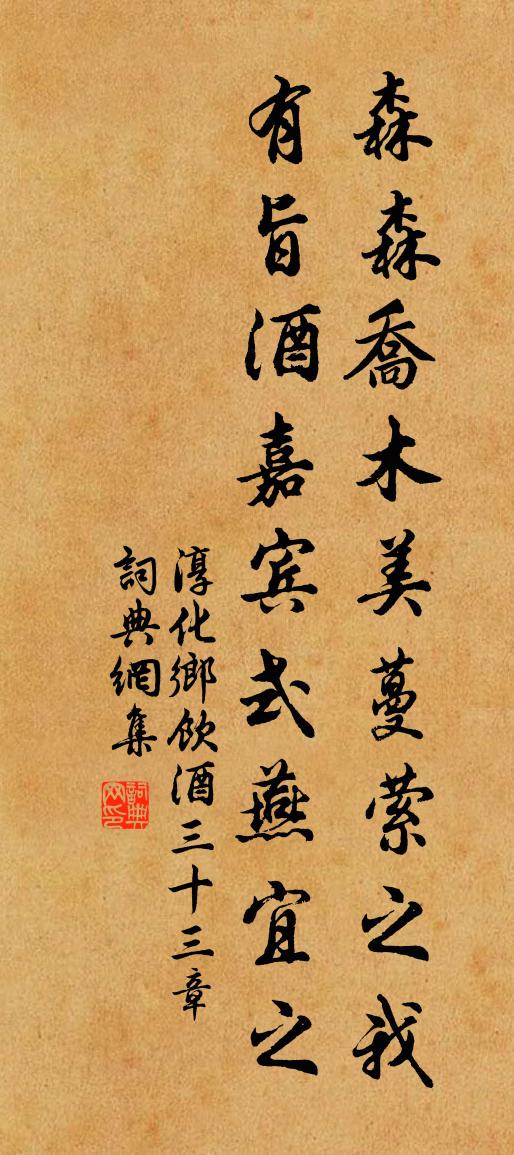 森森喬木美蔓縈之我
有旨酒嘉宾式燕宜之
淳化鄉飲酒三十三章
詞典網集
詞典
网印